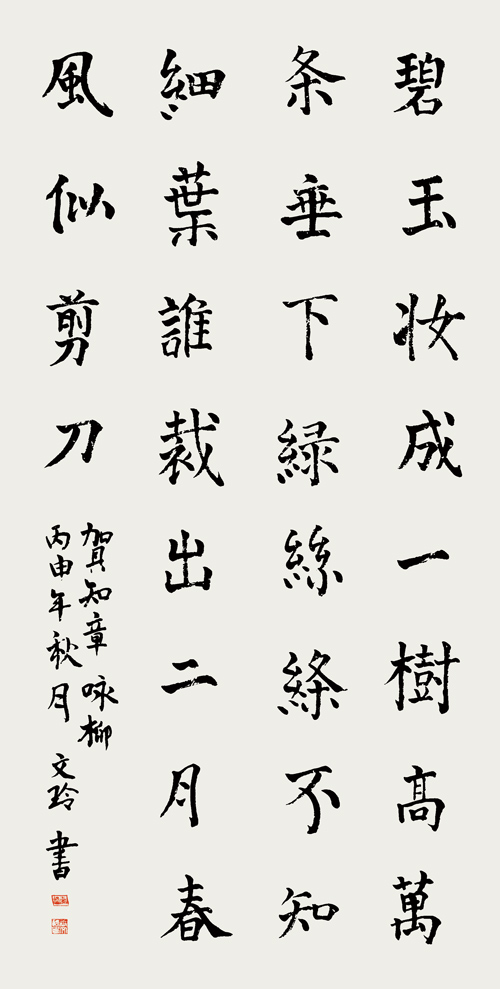 碧玉妆成一樹高萬
条垂下緑絲絛不知
細葉誰裁出二月春
風似剪刀
賀知章 咏柳
丙申年秋月 文玲 書